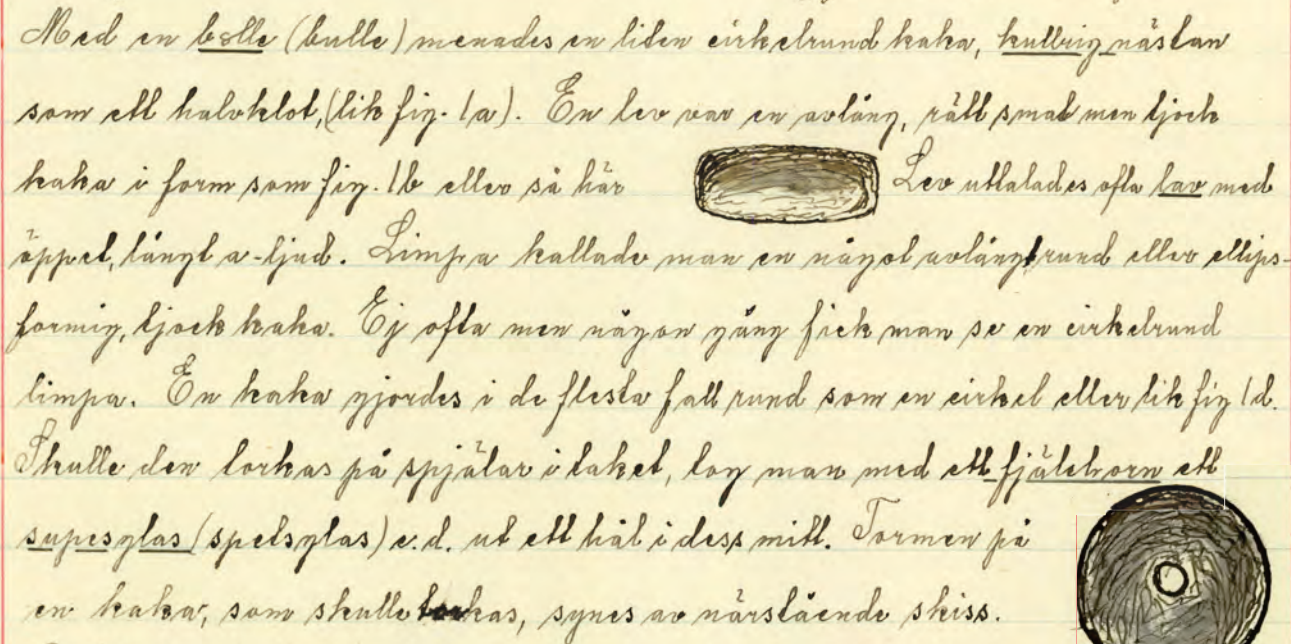 Med en bolle (bulle) menades en liten cirkelrund kaka, kullrig nästan
som ett halvklot, (lik fig. 1a). En lev var en avlång, rätt smal men tjock
kaka i form som fig. 1b eller så här Lev uttalades ofta lav med
öppet, långt a-ljud. Limpa kallade man en något avlångtrund eller ellips-
formig, tjock kaka. Ej ofta men någon gång fick man se en cirkelrund
limpa. En kaka gjordes i de flesta fall rund som en cirkel eller lik fig 1d.
Skulle den torkas på spjälar i taket, tog man med ett fjälehorn ett
supesglas (spetsglas) e.d. ut ett hål i dess mitt. Formen på
en kaka, som skulle torkas, synes av närstående skiss.